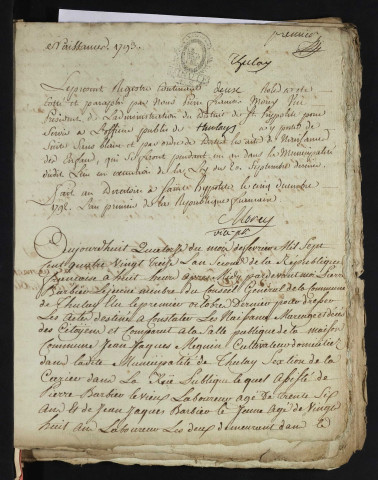 Naissances 1793.
premier
Thulay
Le present Registre contenant douze holes a vote
cotté et paraphé par Nous Pierre François Moncy Vice
President de L'administration du District de St hyppolite pour
Servir a L'office public de thulays a y porter de
Suite Sans blanc et par ordre de Dattes les acte de Naissance
des Enfans, qui Seferont pendant un an dans la Municipalité
dudit Lieu en execution de la Loy du 20. Septembre dernier
Fait au Directoire a Sainte hyppolite le cinq decembre
1792. L'an premier de la Republique francaise
vice pt
Dujourdhuit Quatorze du mois de fevrier Mil Sept
Cent quatre Vingt treize L'an Second de la Republique
francaise à huit heur apres Midy par devant moi Pierre
Barbier Lejeune membre du Conseil Général de la Commune
de Thulay Elu le premier octobre Dernier pour dresser
Les Actes destiné a Constater Les Naissance Mariage et décès
des Citoyen est Comparut a la Salle publique de la maison
Commune Jean Jaques Mequin Cultivateur domicilié
dans ladite Municipalité de Thulay Section de la
dans La Rüe Publique lequel Assisté de
Pierre Barbier le vieux Laboureur agé de trente Six
Ans & de Jean Jaques Barbier le Jeune Agé de Vingt
huit ans Laboureur Les deux demeurant dans le